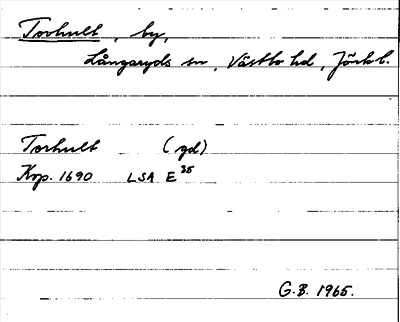 Torhult, by,
Långaryds sn, Västbo hd, Jönk l.
Torhult (gd)
Kop. 1690 LSA E³⁵
G.B. 1965.